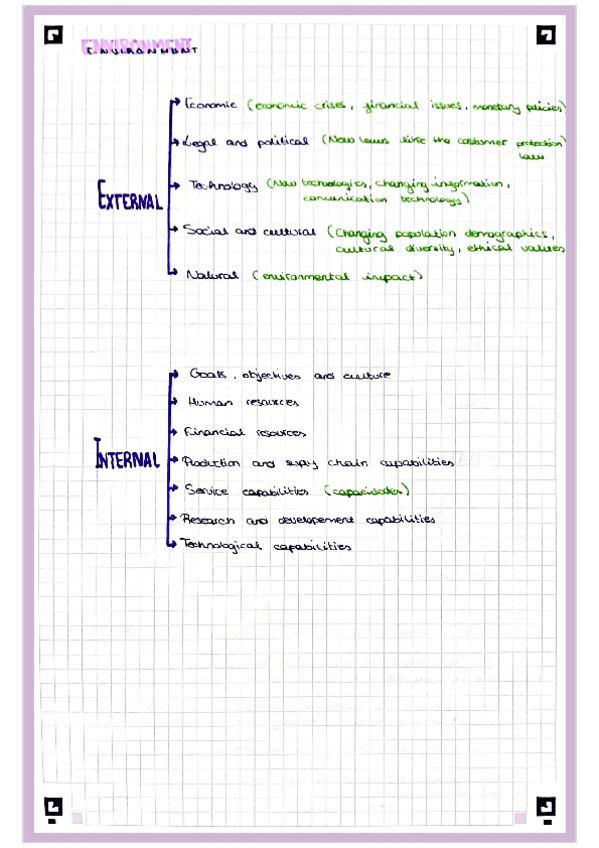 ENVIRONMENT
EXTERNAL
Economic (economic crises, financial issues, monetary policies)
Legal and political (New laws like the costumer protection
law
Technology (New tecnologies, changing information,
comunication technology)
Social and cultural (Changing population demographics,
cultural diversity, ethical values
Natural (environmental impact)
INTERNAL
Goals, objectives and culture
Human resources
Financial resources
Production and supply chain capabilities
Service capabilities (capacidades)
Research and developement capabilities
Technological capabilities